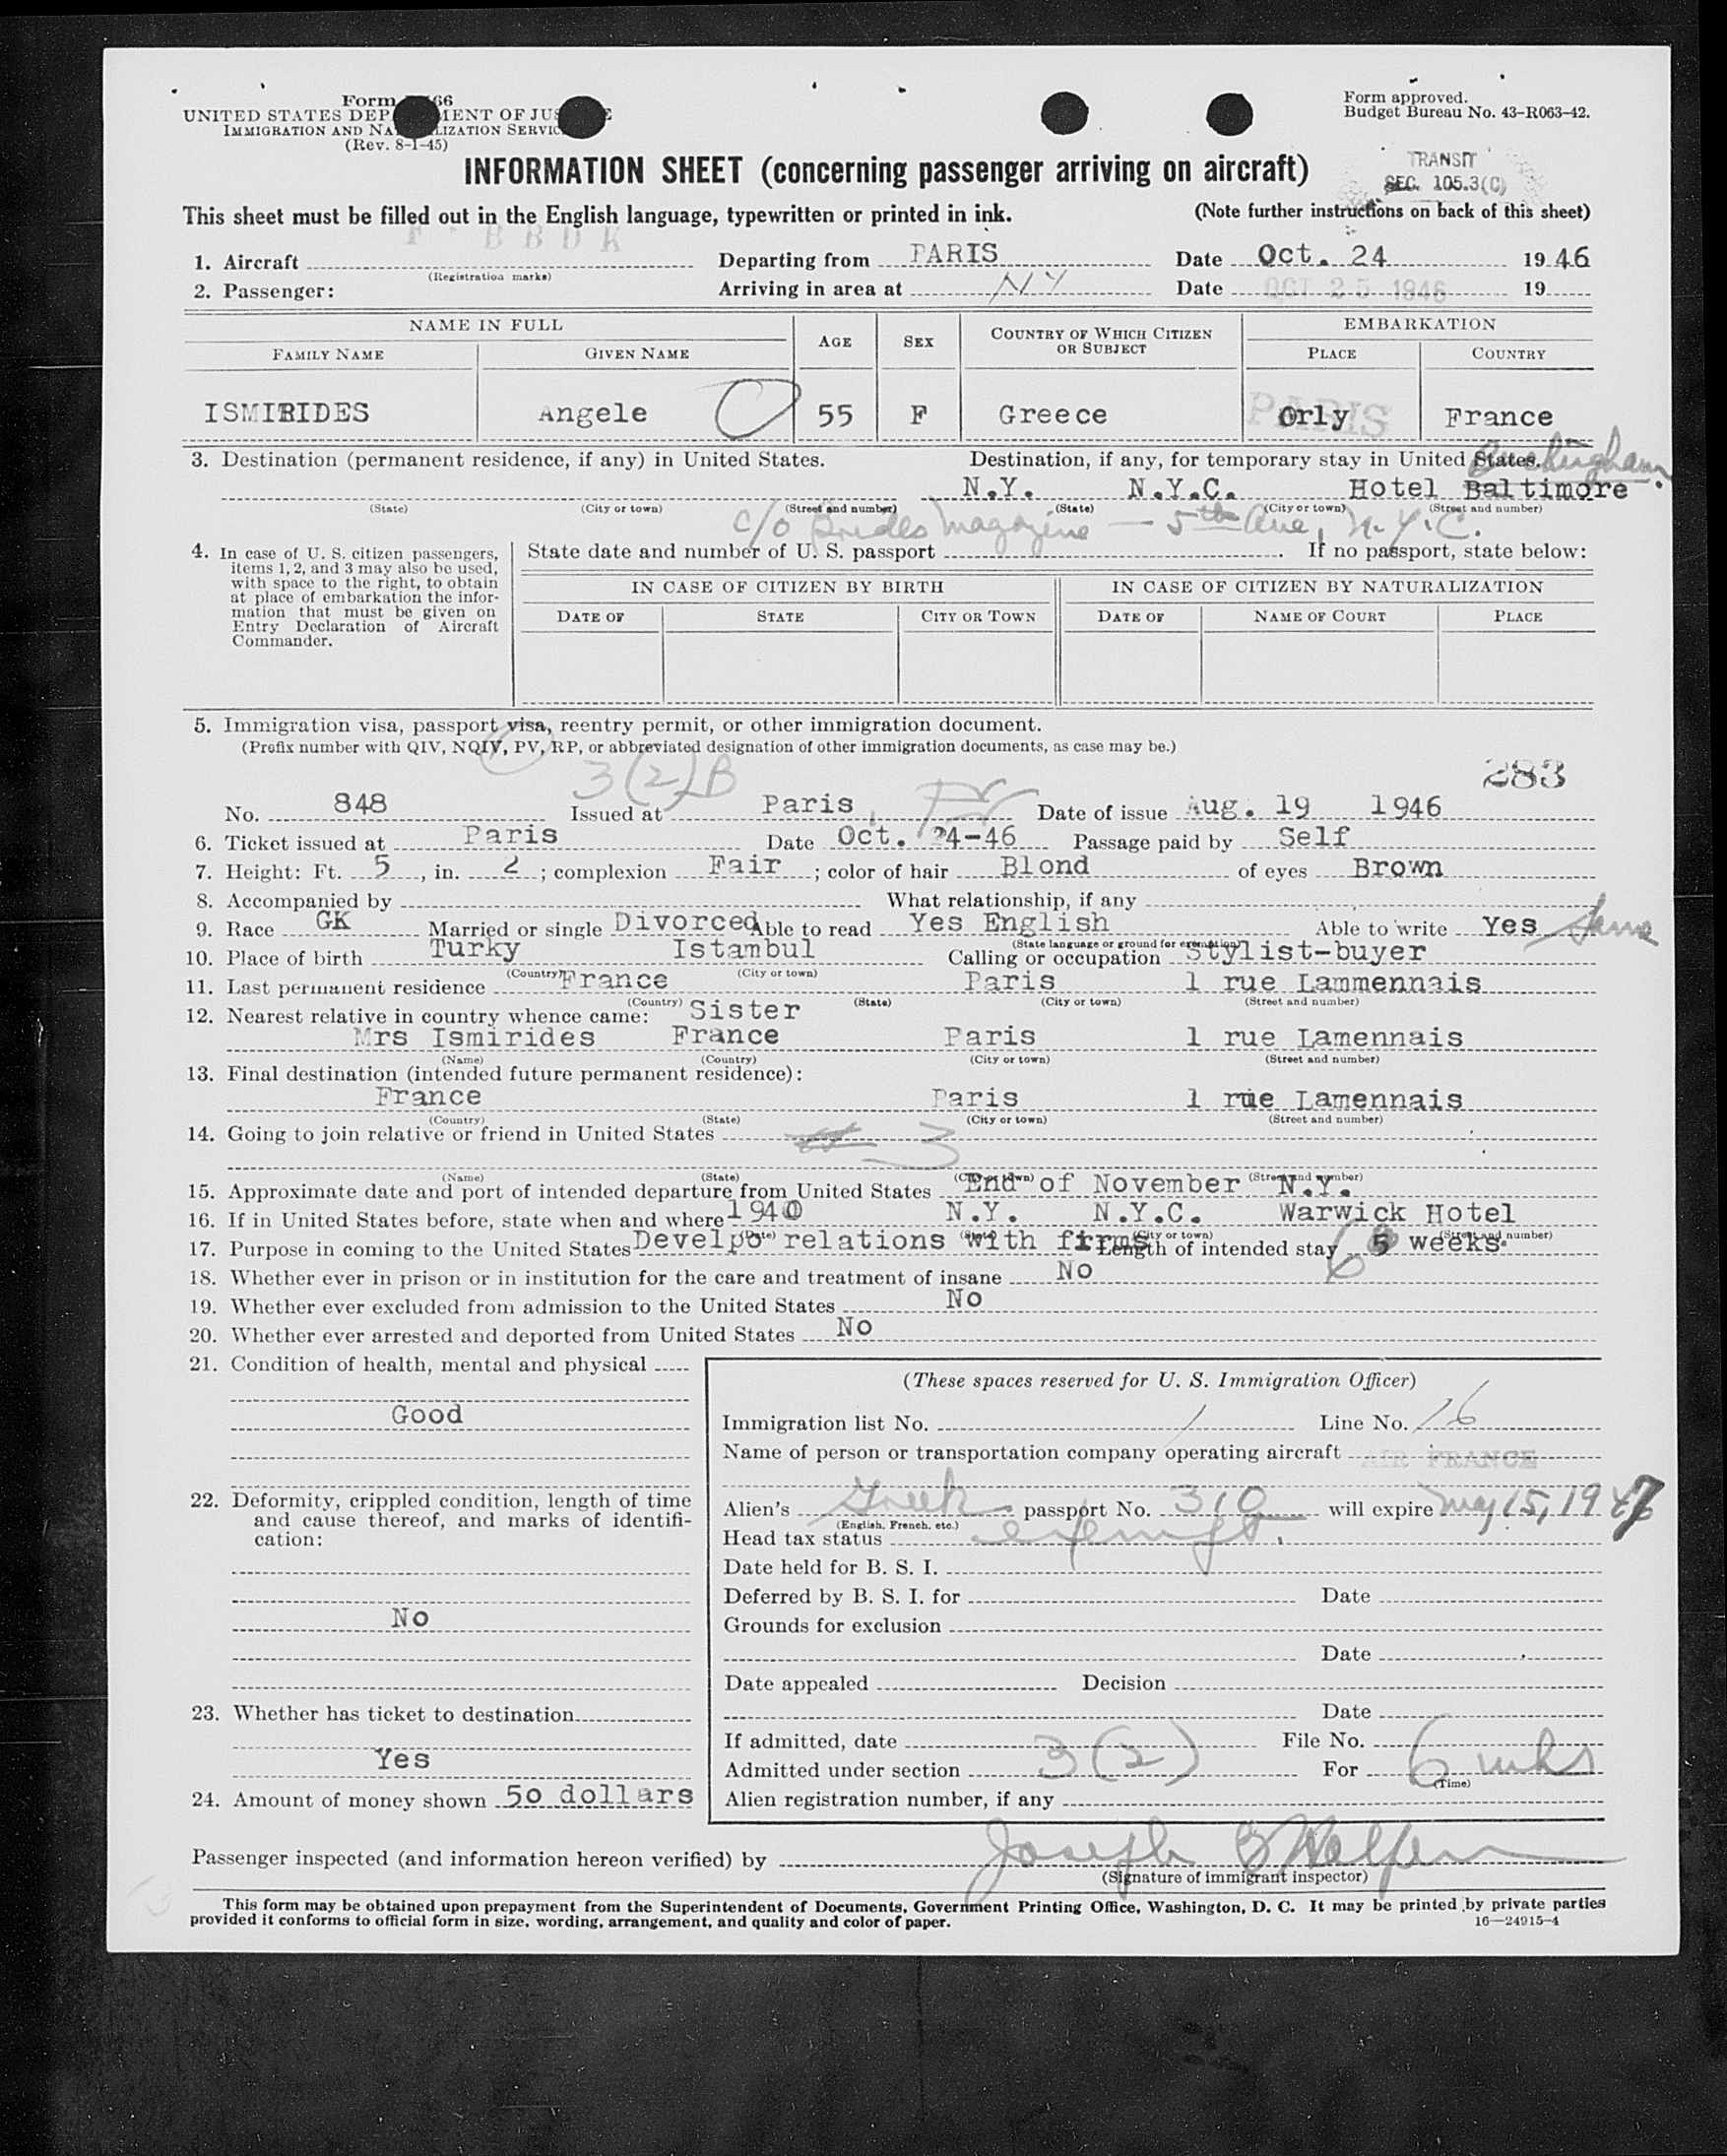 Form 66
UNITED STATES DEP MENT OF JUS E
IMMIGRATION AND NA LIZATION SERVIC
(Rev. 8-1-45)
Form approved.
Budget Bureau No. 43-R063-42.
INFORMATION SHEET (concerning passenger arriving on aircraft)
TRANSIT
SEC. 105.3(C)
This sheet must be filled out in the English language, typewritten or printed in ink. (Note further instructions on back of this sheet)
1. Aircraft F-BBDK Departing from PARIS Date Oct. 24 1946
(Registration marks)
2. Passenger: Arriving in area at NY Date OCT 25 1946 19
NAME IN FULL AGE SEX COUNTRY OF WHICH CITIZEN OR SUBJECT EMBARKATION
FAMILY NAME GIVEN NAME PLACE COUNTRY
ISMIRIDES Angele 55 F Greece PARIS Orly France
3. Destination (permanent residence, if any) in United States. Destination, if any, for temporary stay in United States.
Buckingham
N.Y. N.Y.C. Hotel Baltimore
(State) (City or town) (Street and number) (State) (City or town) (Street and number)
c/o Brides Magazine — 5th Ave, N.Y.C.
4. In case of U. S. citizen passengers, items 1, 2, and 3 may also be used, with space to the right, to obtain at place of embarkation the information that must be given on Entry Declaration of Aircraft Commander.
State date and number of U. S. passport . If no passport, state below:
IN CASE OF CITIZEN BY BIRTH IN CASE OF CITIZEN BY NATURALIZATION
DATE OF STATE CITY OR TOWN DATE OF NAME OF COURT PLACE
5. Immigration visa, passport visa, reentry permit, or other immigration document.
(Prefix number with QIV, NQIV, PV, RP, or abbreviated designation of other immigration documents, as case may be.)
3(2)B 283
No. 848 Issued at Paris Date of issue Aug. 19 1946
6. Ticket issued at Paris Date Oct. 24-46 Passage paid by Self
7. Height: Ft. 5, in. 2; complexion Fair; color of hair Blond of eyes Brown
8. Accompanied by What relationship, if any
9. Race GK Married or single Divorced Able to read Yes English Able to write Yes Same
(State language or ground for exemption)
10. Place of birth Turky Istambul Calling or occupation Stylist-buyer
(Country) (City or town)
11. Last permanent residence France Paris 1 rue Lammennais
(Country) (State) (City or town) (Street and number)
12. Nearest relative in country whence came: Sister
Mrs Ismirides France Paris 1 rue Lamennais
(Name) (Country) (City or town) (Street and number)
13. Final destination (intended future permanent residence):
France Paris 1 rue Lamennais
(Country) (State) (City or town) (Street and number)
14. Going to join relative or friend in United States 3
(Name) (State) (City or town) (Street and number)
15. Approximate date and port of intended departure from United States End of November N.Y.
16. If in United States before, state when and where 1940 N.Y. N.Y.C. Warwick Hotel
(Date) (State) (City or town) (Street and number)
17. Purpose in coming to the United States Develpo relations with firms Length of intended stay 6 5 weeks
18. Whether ever in prison or in institution for the care and treatment of insane No
19. Whether ever excluded from admission to the United States No
20. Whether ever arrested and deported from United States No
21. Condition of health, mental and physical
Good
22. Deformity, crippled condition, length of time and cause thereof, and marks of identification:
No
23. Whether has ticket to destination
Yes
24. Amount of money shown 50 dollars
(These spaces reserved for U. S. Immigration Officer)
Immigration list No. 1 Line No. 16
Name of person or transportation company operating aircraft AIR FRANCE
Alien's Greek passport No. 310 will expire May 15, 1947
(English, French, etc.)
Head tax status exempt.
Date held for B. S. I.
Deferred by B. S. I. for Date
Grounds for exclusion
Date
Date appealed Decision
Date
If admitted, date File No.
Admitted under section 3(2) For 6 wks
(Time)
Alien registration number, if any
Passenger inspected (and information hereon verified) by Joseph
(Signature of immigrant inspector)
This form may be obtained upon prepayment from the Superintendent of Documents, Government Printing Office, Washington, D. C. It may be printed by private parties
provided it conforms to official form in size, wording, arrangement, and quality and color of paper. 16—24915-4